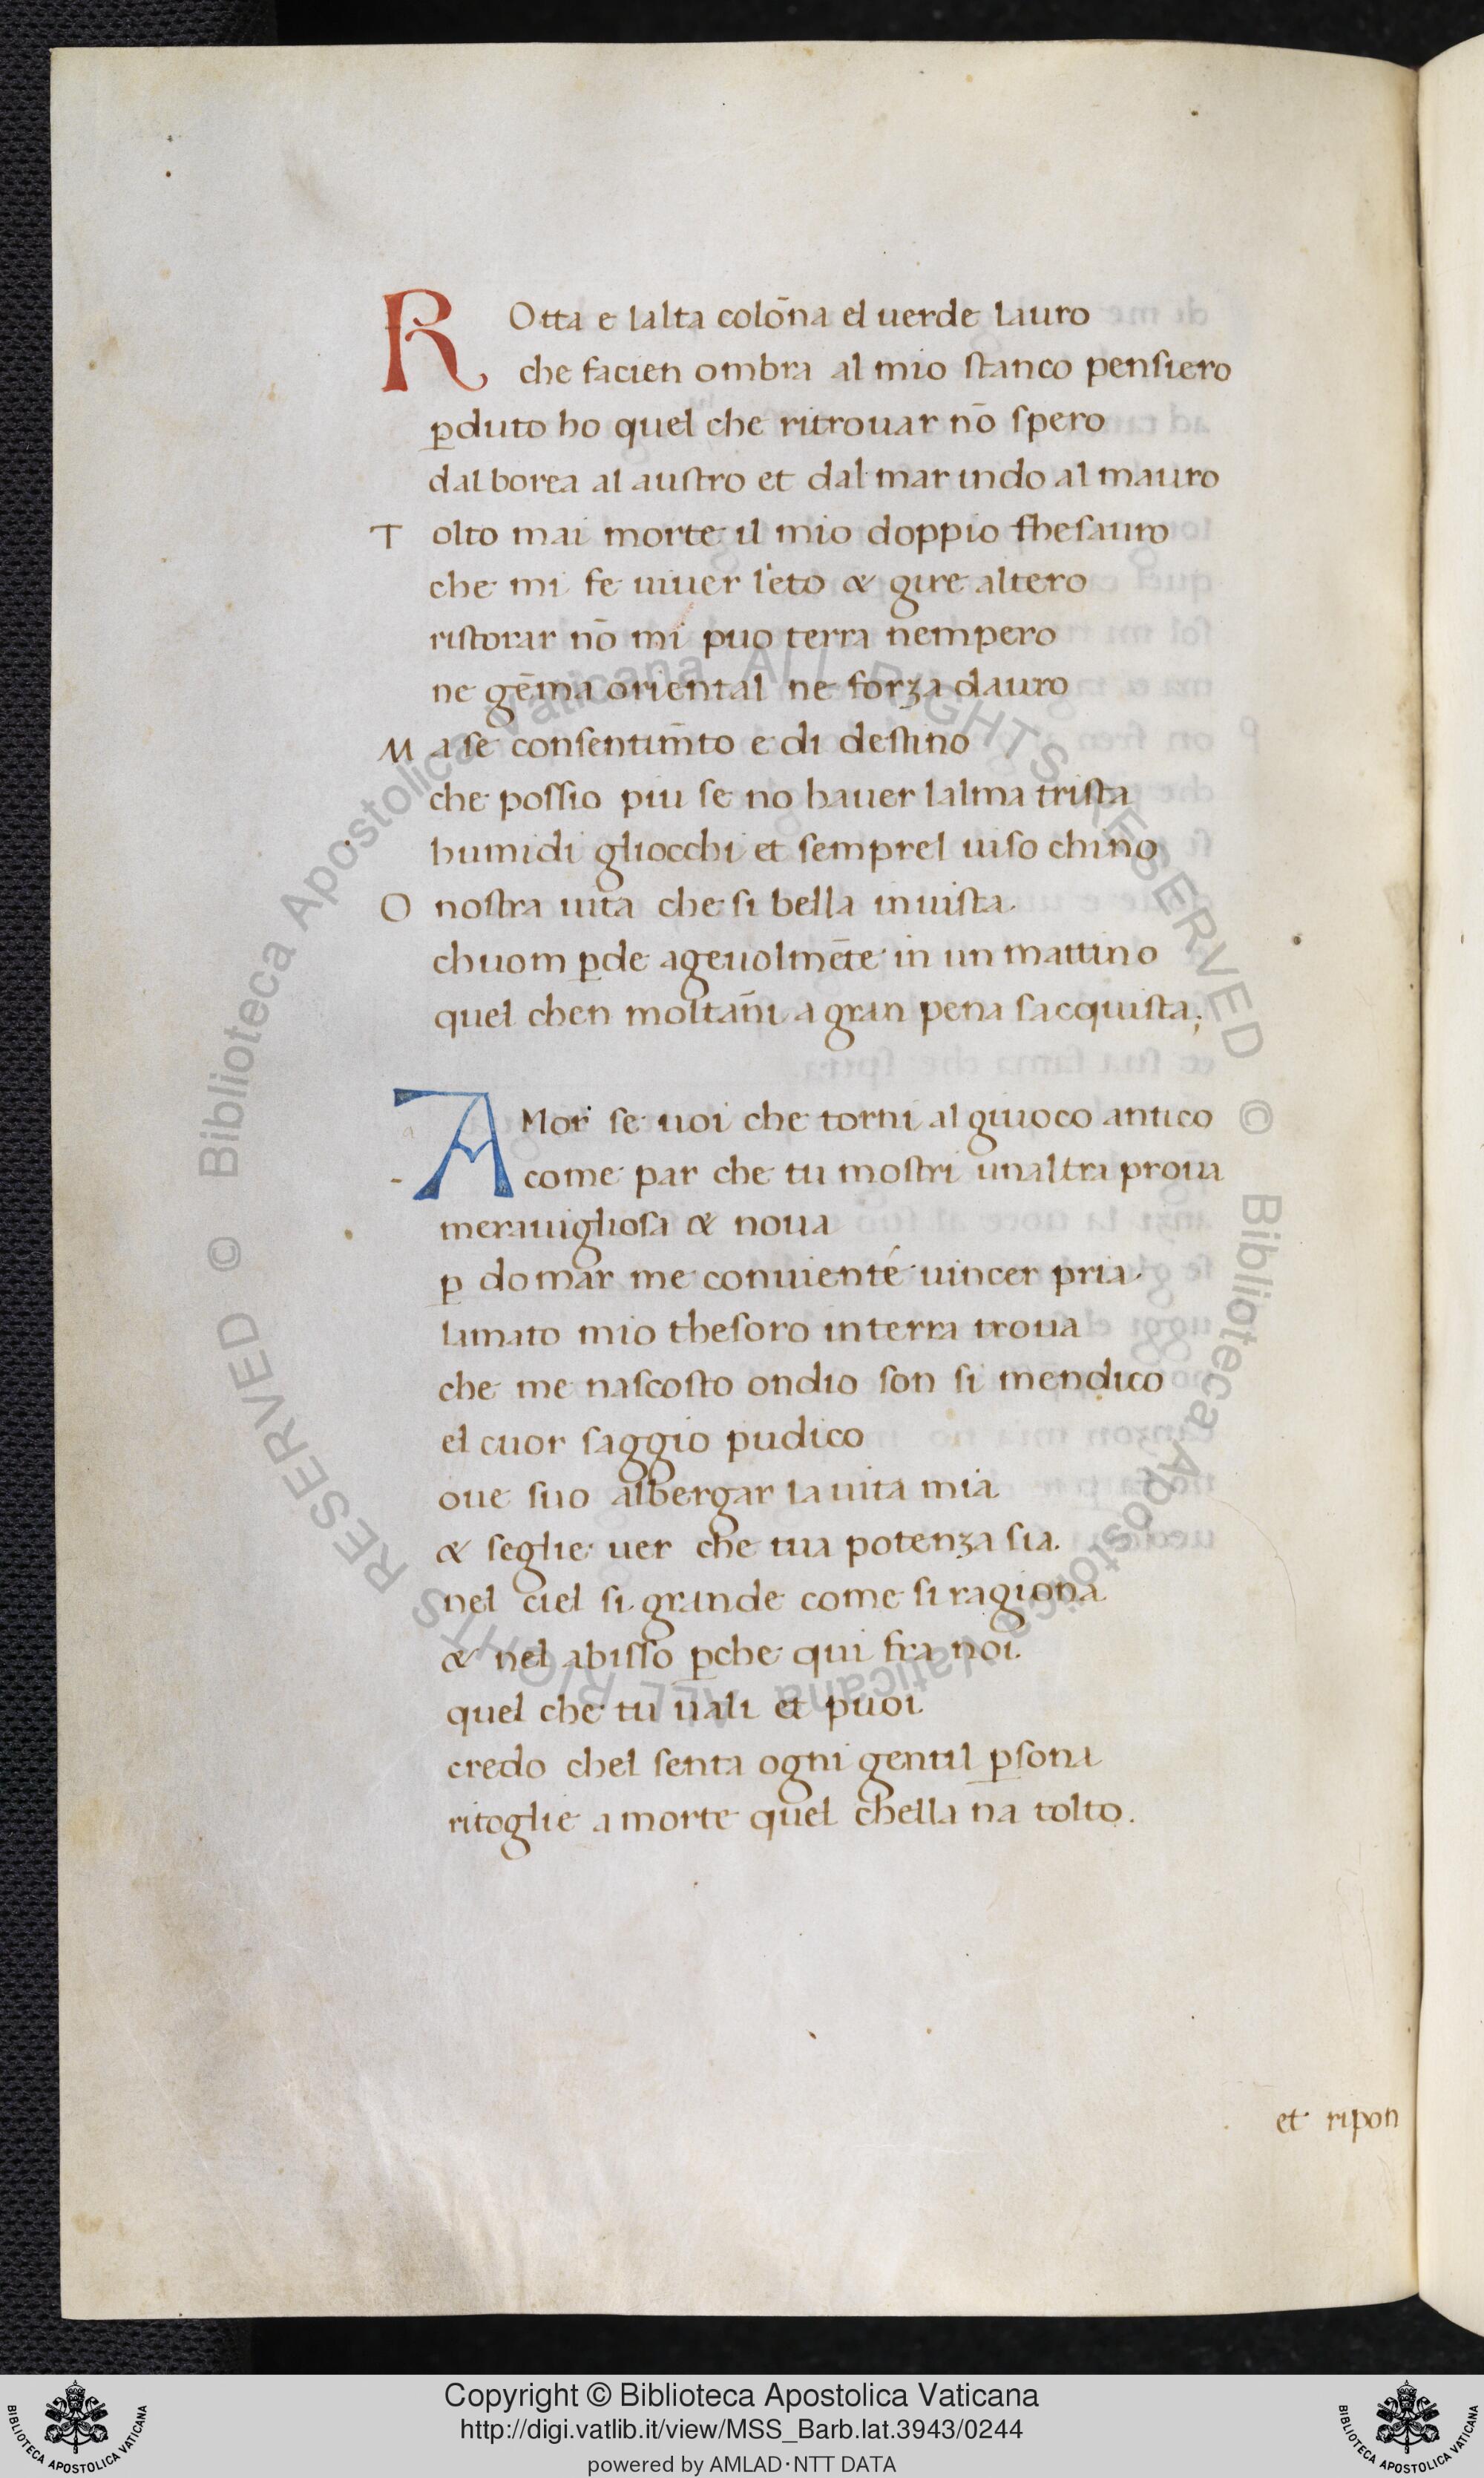 ROtta e lalta colōna el uerde lauro
che facien ombra al mio ſtanco penſiero
ꝑduto ho quel che ritrouar nō ſpero
dal borea al auſtro et dal mar indo al mauro
Tolto mai morte il mio doppio theſauro
che mi fe uiuer lieto & gire altero
riſtorar nō mi puo terra nempero
ne gēma oriental ne forza dauro
Ma ſe conſentim̄to e di deſtino
che poſſio piu ſe no hauer lalma triſta
humidi gliocchi et ſemprel uiſo chino
O noſtra uita che ſi bella inuiſta
chuom ꝑde ageuolmēte in un mattino
quel chen moltan̄i a gran pena ſacquiſta;
AMor ſe uoi che torni al giuoco antico
come par che tu moſtri unaltra proua
merauiglioſa & noua
ꝑ domar me conuiente uincer pria.
lamato mio theſoro in terra troua
che me naſcoſto ondio ſon ſi mendico
el cuor ſaggio pudico
oue ſuo albergar la uita mia
& ſeglie uer che tua potenza ſia.
nel ciel ſi grande come ſi ragiona
& nel abiſſo ꝑche qui fra noi.
quel che tu uali et puoi.
credo chel ſenta ogni gentil ꝑſona
ritoglie a morte quel chella na tolto.
et ripon
Copyright © Biblioteca Apostolica Vaticana
http://digi.vatlib.it/view/MSS_Barb.lat.3943/0244
powered by AMLAD·NTT DATA
BIBLIOTECA APOSTOLICA VATICANA
BIBLIOTECA APOSTOLICA VATICANA
© Biblioteca Apostolica Vaticana ALL RIGHTS RESERVED © Biblioteca Apostolica Vaticana ALL RIGHTS RESERVED